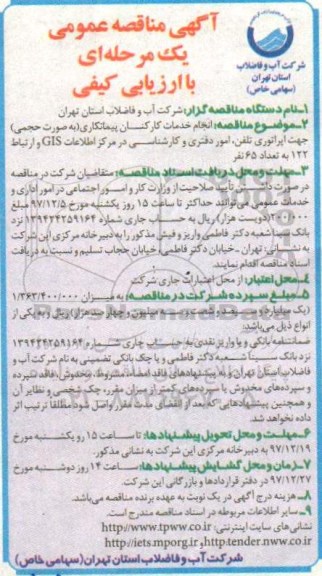 آگهی مناقصه عمومی
یک مرحله‌ای
با ارزیابی کیفی
شرکت آب و فاضلاب
استان تهران
(سهامی خاص)
۱-نام دستگاه مناقصه گزار: شرکت آب و فاضلاب استان تهران
۲-موضوع مناقصه: انجام خدمات کارکنان پیمانکاری(به صورت حجمی)
جهت اپراتوری تلفن، امور دفتری و کارشناسی در مرکز اطلاعات GIS و ارتباط
۱۲۲ به تعداد ۶۵ نفر
۳-مهلت و محل دریافت اسناد مناقصه: متقاضیان شرکت در مناقصه
در صورت داشتن تأیید صلاحیت از وزارت کار و امور اجتماعی در امور اداری و
خدمات عمومی می‌توانند حداکثر تا ساعت ۱۵ روز یکشنبه مورخ ۹۷/۱۲/۵ مبلغ
۲۰۰/۰۰۰ (دویست هزار) ریال به حساب جاری شماره ۱۳۹۴۲۴۲۵۹۱۶۴ نزد
بانک سینا شعبه دکتر فاطمی واریز و فیش مذکور را به دبیرخانه مرکزی این شرکت
به نشانی: تهران - خیابان دکتر فاطمی، خیابان حجاب تسلیم و نسبت به دریافت
اسناد مناقصه اقدام نمایند.
۴-محل اعتبار: از محل اعتبارات جاری شرکت
۵-مبلغ سپرده شرکت در مناقصه: به میزان ۱/۳۶۳/۴۰۰/۰۰۰
(یک میلیارد و سیصد و شصت و سه میلیون و چهارصد هزار) ریال و به یکی از
انواع ذیل می‌باشد:
ضمانتنامه بانکی و یا واریز نقدی به حساب جاری شماره ۱۳۹۴۲۴۲۵۹۱۶۴
نزد بانک سینا شعبه دکتر فاطمی و یا چک بانکی تضمینی به نام شرکت آب و
فاضلاب استان تهران و به پیشنهادهای فاقد امضاء، مشروط، مخدوش، فاقد سپرده
و سپرده‌های مخدوش یا سپرده‌های کمتر از میزان مقرر، چک شخصی و نظایر آن
و همچنین پیشنهادهایی که بعد از انقضای مدت مقرر واصل شود مطلقا ترتیب اثر
داده نخواهد شد.
۶-مهلت و محل تحویل پیشنهادها: تا ساعت ۱۵ روز یکشنبه مورخ
۹۷/۱۲/۱۹ به دبیرخانه مرکزی این شرکت به نشانی مذکور.
۷-زمان و محل گشایش پیشنهادها: ساعت ۱۴ روز دوشنبه مورخ
۹۷/۱۲/۲۷ در دفتر قراردادها و بازرگانی این شرکت.
۸- هزینه درج آگهی در یک نوبت به عهده برنده مناقصه می‌باشد.
۹- سایر اطلاعات مربوطه در اسناد مناقصه مندرج است.
نشانی‌های سایت اینترنتی: http//www.tpww.co.ir
http//iets.mporg.ir و http:tender.nww.co.ir
شرکت آب و فاضلاب استان تهران (سهامی خاص)